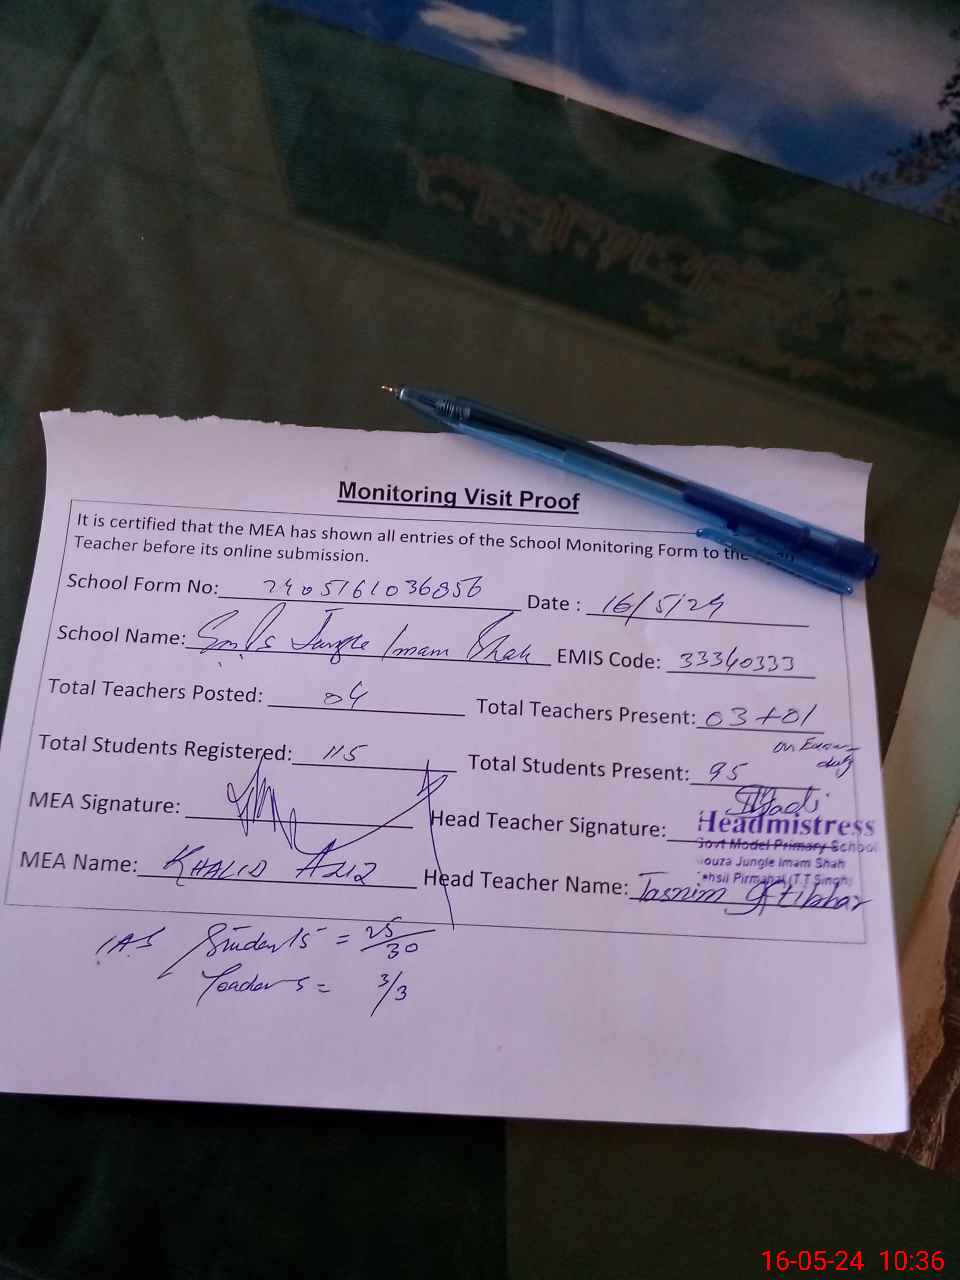 Monitoring Visit Proof
It is certified that the MEA has shown all entries of the School Monitoring Form to the
Teacher before its online submission.
School Form No: 2405161036856 Date : 16/5/24
School Name: Jungle Imam Shah EMIS Code: 33340333
Total Teachers Posted: 04 Total Teachers Present: 03+01
on Exam duty
Total Students Registered: 115 Total Students Present: 95
MEA Signature: Head Teacher Signature:
Headmistress
Govt Model Primary School
ouza Jungle Imam Shah
hsil Pirmahal (T.T Singh)
MEA Name: KHALID AZIZ Head Teacher Name: Tasnim Iftikhar
Students = 25/30
Teachers = 3/3
16-05-24 10:36